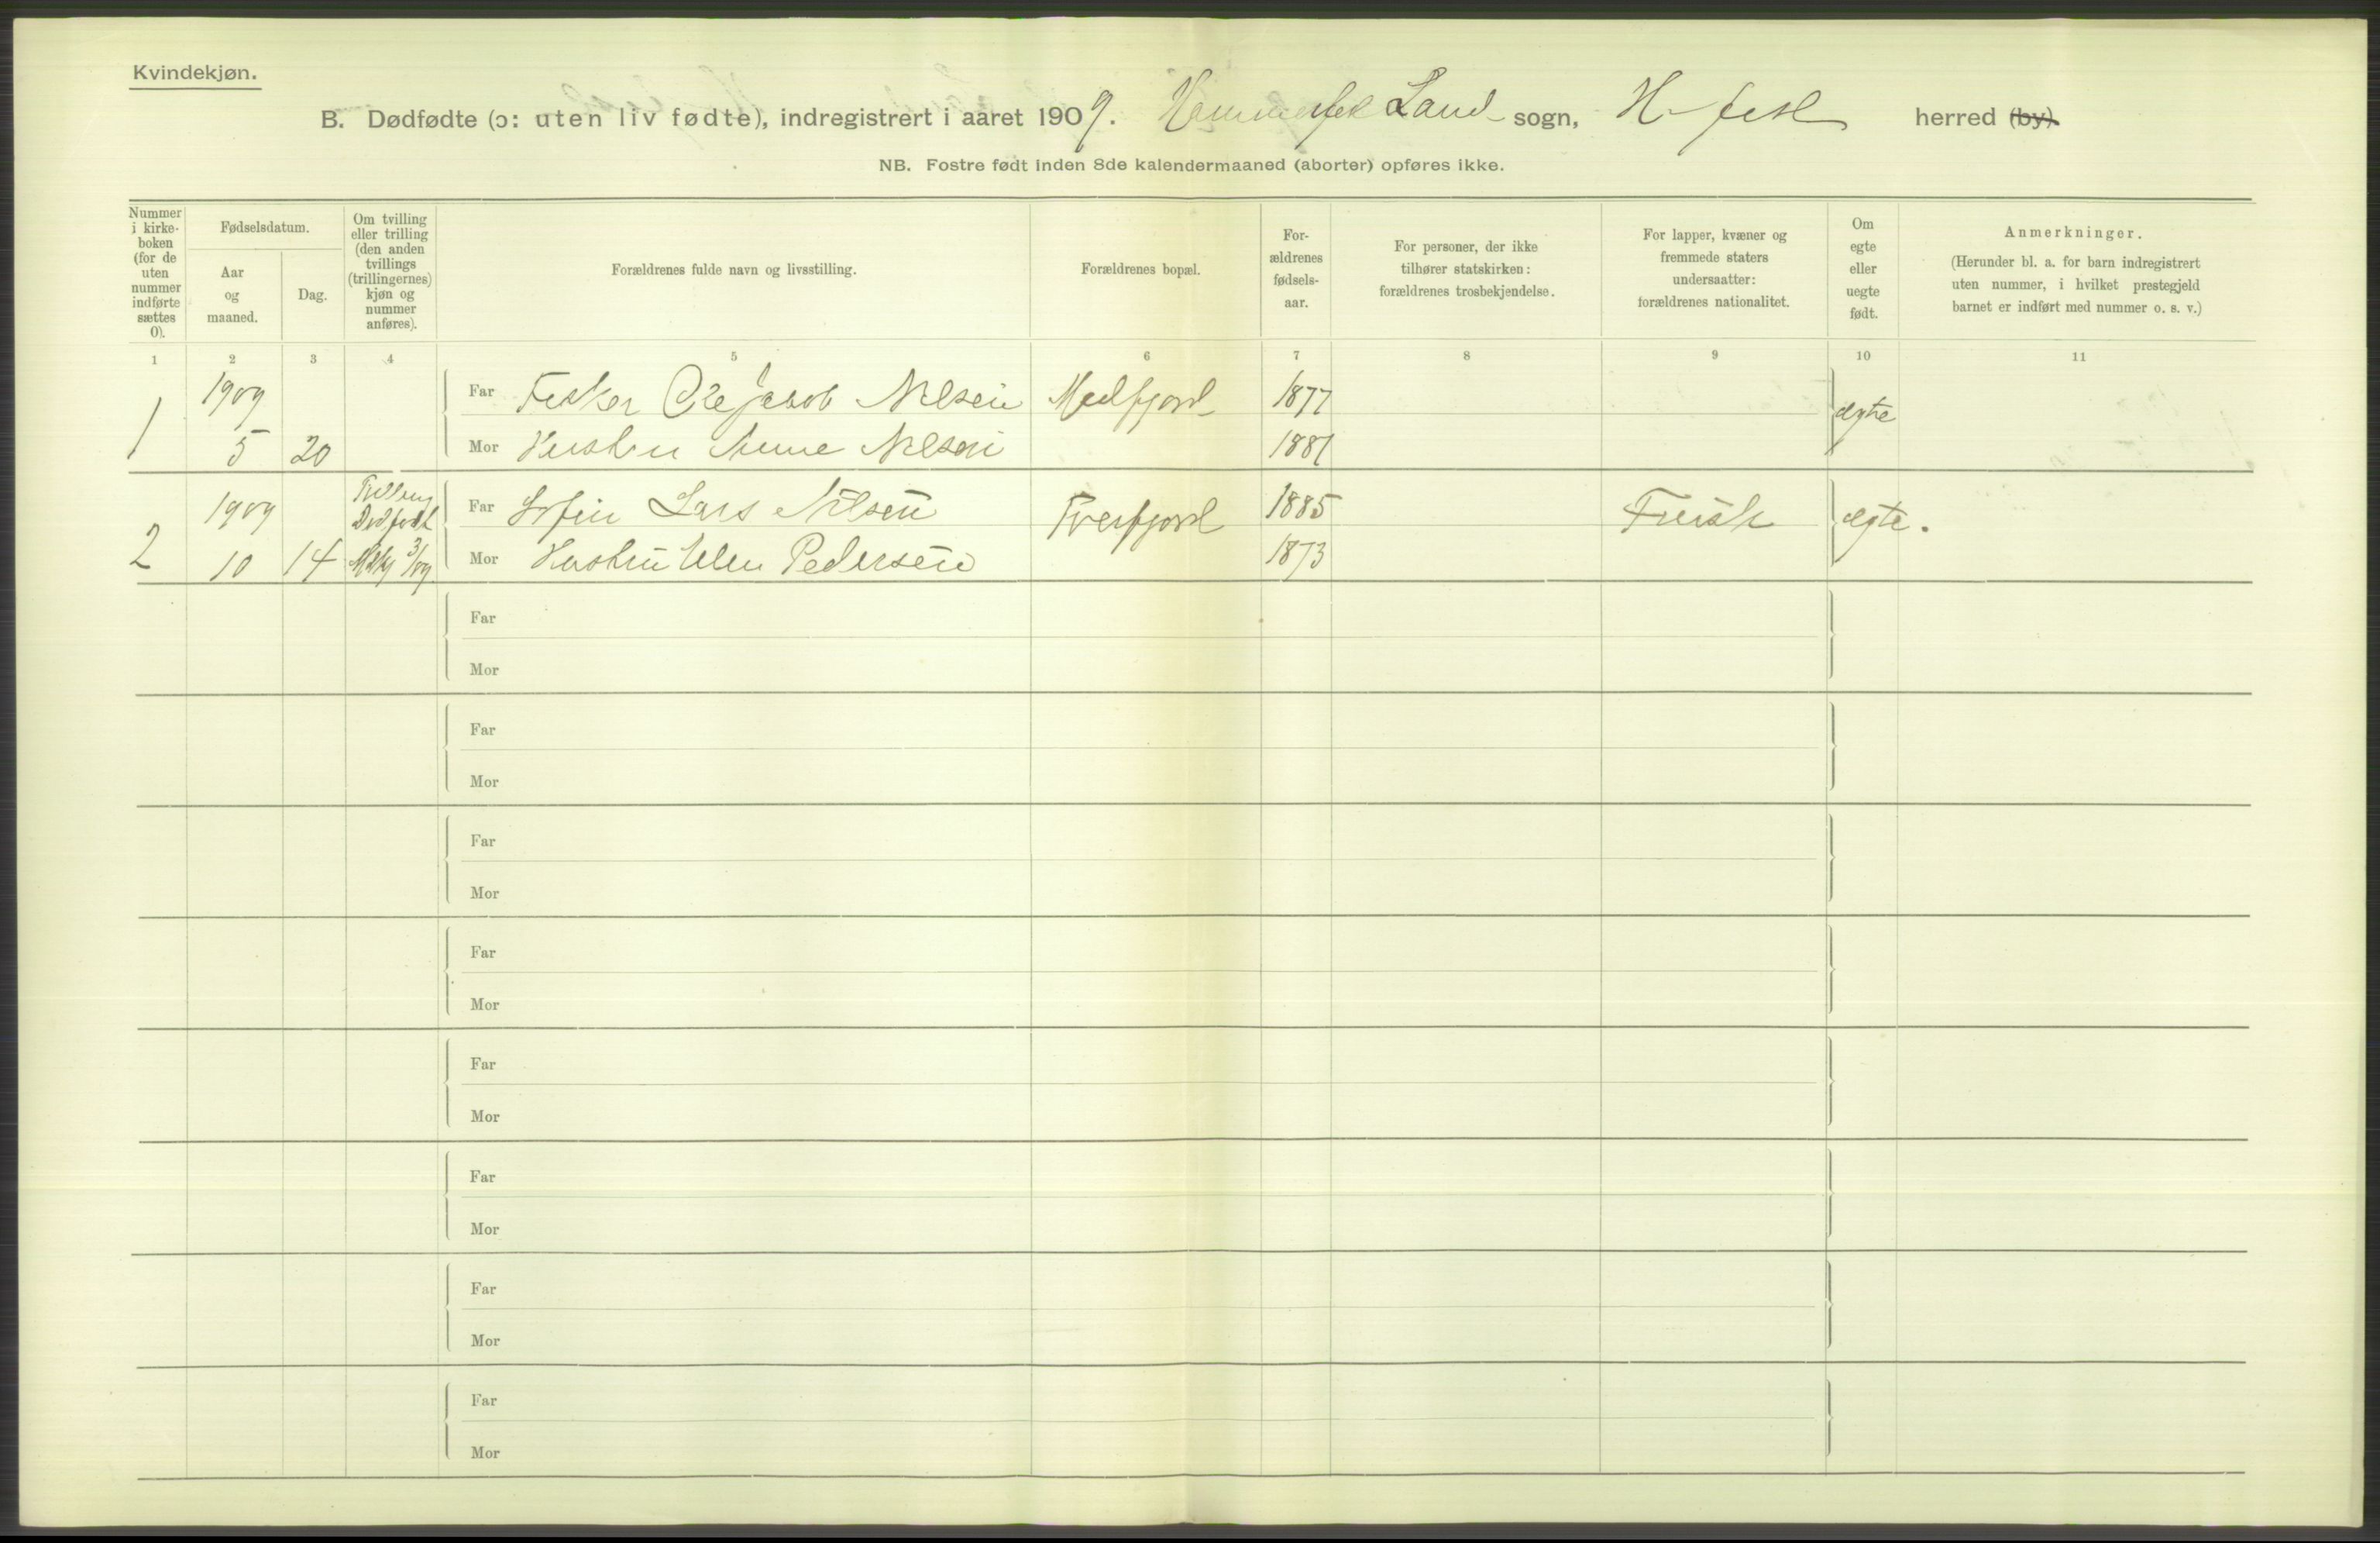 Kvindekjøn.
B. Dødfødte (ɔ: uten liv fødte), indregistrert i aaret 1909. Hammerfest Land sogn, H-fest herred (by).
NB. Fostre født inden 8de kalendermaaned (aborter) opføres ikke.
Nummer i kirke-boken (for de uten nummer indførte sættes 0).
Fødselsdatum.
Aar og maaned.
Dag.
Om tvilling eller trilling (den anden tvillings (trillingernes) kjøn og nummer anføres).
Forældrenes fulde navn og livsstilling.
Forældrenes bopæl.
For-ældrenes fødsels-aar.
For personer, der ikke tilhører statskirken: forældrenes trosbekjendelse.
For lapper, kvæner og fremmede staters undersaatter: forældrenes nationalitet.
Om egte eller uegte født.
Anmerkninger.
(Herunder bl. a. for barn indregistrert uten nummer, i hvilket prestegjeld barnet er indført med nummer o. s. v.)
1 2 3 4 5 6 7 8 9 10 11
1 1909 Far Fisker Ole Jacob Nilsen Medfjord 1877 ægte
5 20 Mor Hustru Anne Nilsen 1881
2 1909 Tvilling Dødfødt Far Lars Nilsen Tverfjord 1885 ægte.
10 14 Mkj 3/09 Mor Hustru Elen Pedersen 1873
Far
Mor
Far
Mor
Far
Mor
Far
Mor
Far
Mor
Far
Mor
Far
Mor
Far
Mor